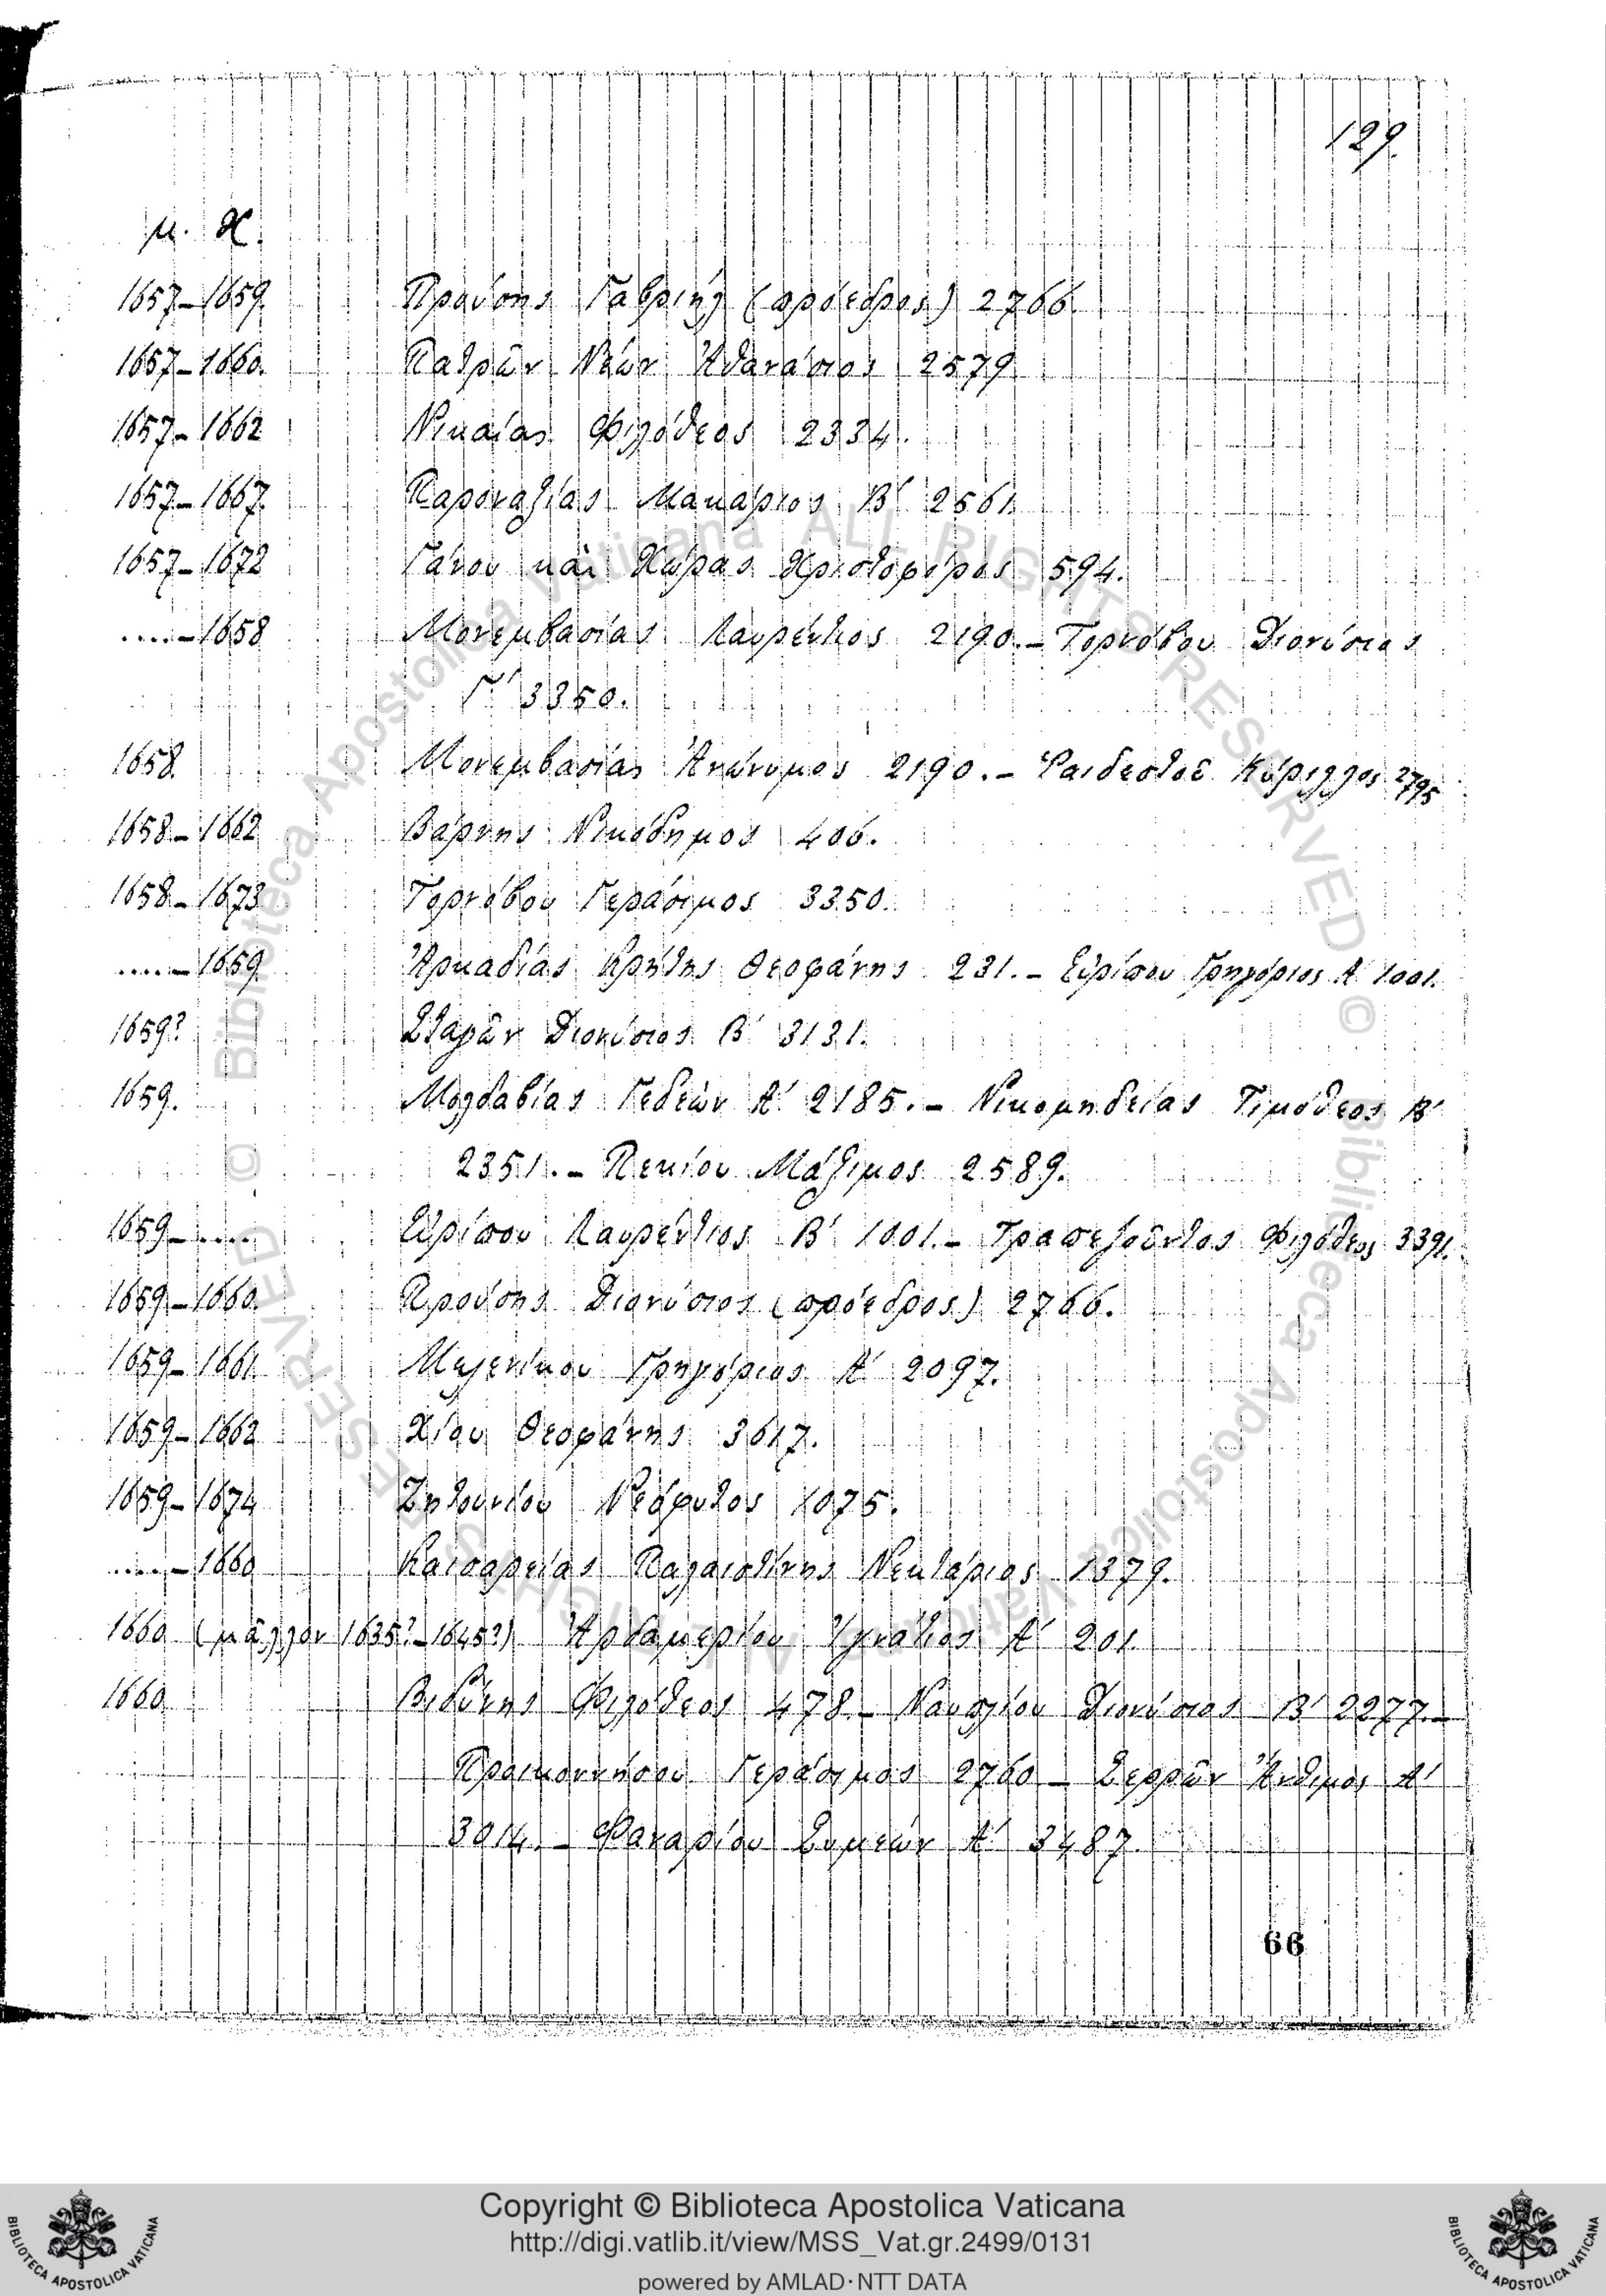 129.
μ. Χ.
1657–1659. Προύσης Γαβριὴλ (πρόεδρος) 2766.
1657–1660. Πατρῶν Νέων Ἀθανάσιος 2579
1657–1662 Νικαίας Φιλόθεος 2334.
1657–1667. Παροναξίας Μακάριος Β΄ 2561.
1657–1672 Γάνου καὶ Χώρας Χριστοφόρος 594.
....–1658 Μονεμβασίας Λαυρέντιος 2190.– Τορνόβου Διονύσιος
Γ΄ 3350.
1658. Μονεμβασίας Ἀνώνυμος 2190.– Ῥαιδεστοῦ Κύριλλος 2795
1658–1662 Βάρνης Νικόδημος 406.
1658–1673 Τορνόβου Γεράσιμος 3350.
....–1659. Ἀρκαδίας Κρήτης Θεοφάνης 231.– Εὐρίπου Γρηγόριος Α΄ 1001.
1659? Σταγῶν Διονύσιος Β΄ 3131.
1659. Μολδαβίας Γεδεὼν Α΄ 2185.– Νικομηδείας Τιμόθεος Β΄
2351.– Πεκίου Μάξιμος 2589.
1659–.... Εὐρίπου Λαυρέντιος Β΄ 1001.– Τραπεζοῦντος Φιλόθεος 3391.
1659–1660. Προύσης Διονύσιος (πρόεδρος) 2766.
1659–1661 Μελενίκου Γρηγόριος Α΄ 2097.
1659–1662 Χίου Θεοφάνης 3617.
1659–1674 Ζητουνίου Νεόφυτος 1075.
....–1660 Καισαρείας Παλαιστίνης Νεκτάριος 1379.
1660 (μᾶλλον 1635?–1645?) Ἀρδαμερίου Ἰγνάτιος Α΄ 201.
1660 Βιδύνης Φιλόθεος 478.– Ναυπλίου Διονύσιος Β΄ 2277.–
Προικοννήσου Γεράσιμος 2760 – Σερρῶν Ἄνθιμος Α΄
3014.– Φαναρίου Συμεὼν Α΄ 3487.
66
Copyright © Biblioteca Apostolica Vaticana
http://digi.vatlib.it/view/MSS_Vat.gr.2499/0131
powered by AMLAD·NTT DATA
BIBLIOTECA APOSTOLICA VATICANA
BIBLIOTECA APOSTOLICA VATICANA
© Biblioteca Apostolica Vaticana ALL RIGHTS RESERVED © Biblioteca Apostolica Vaticana ALL RIGHTS RESERVED